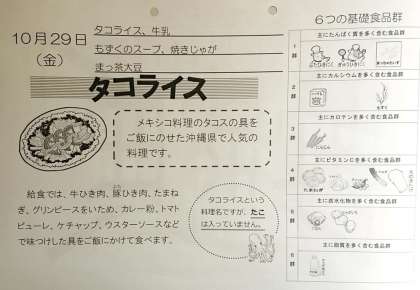 10月29日
(金)
タコライス、牛乳
もずくのスープ、焼きじゃが
まっ茶大豆
タコライス
メキシコ料理のタコスの具を
ご飯にのせた沖縄県で人気の
料理です。
給食では、牛ひき肉、豚ひき肉、たまね
ぎ、グリンピースをいため、カレー粉、トマト
ピューレ、ケチャップ、ウスターソースなど
で味つけした具をご飯にかけて食べます。
タコライスという
料理名ですが、たこ
は入っていません。
6つの基礎食品群
1群
主にたんぱく質を多く含む食品群
ぶたひきにく
ぎゅうひきにく
2群
主にカルシウムを多く含む食品群
もずく
3群
主にカロテンを多く含む食品群
4群
主にビタミンCを多く含む食品群
たまねぎ
5群
主に炭水化物を多く含む食品群
6群
主に脂質を多く含む食品群